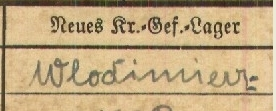 Neues Kr.-Gef.-Lager
Wlodimierz